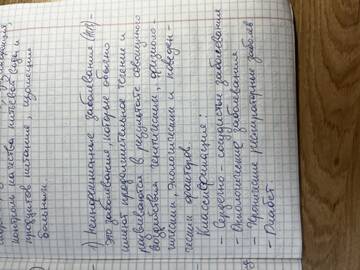 контроль качества питьевой воды и
продуктов питания,
больных.
1) Неинфекционные заболевания (НИЗ) -
это заболевания, которые обычно
имеют продолжительное течение и
развиваются в результате совместного
воздействия генетических, физиоло-
гических, экологических и поведен-
ческих факторов.
Классификация:
- Сердечно-сосудистые заболевания
- Онкологические заболевания
- Хронические респираторные заболев
- Диабет